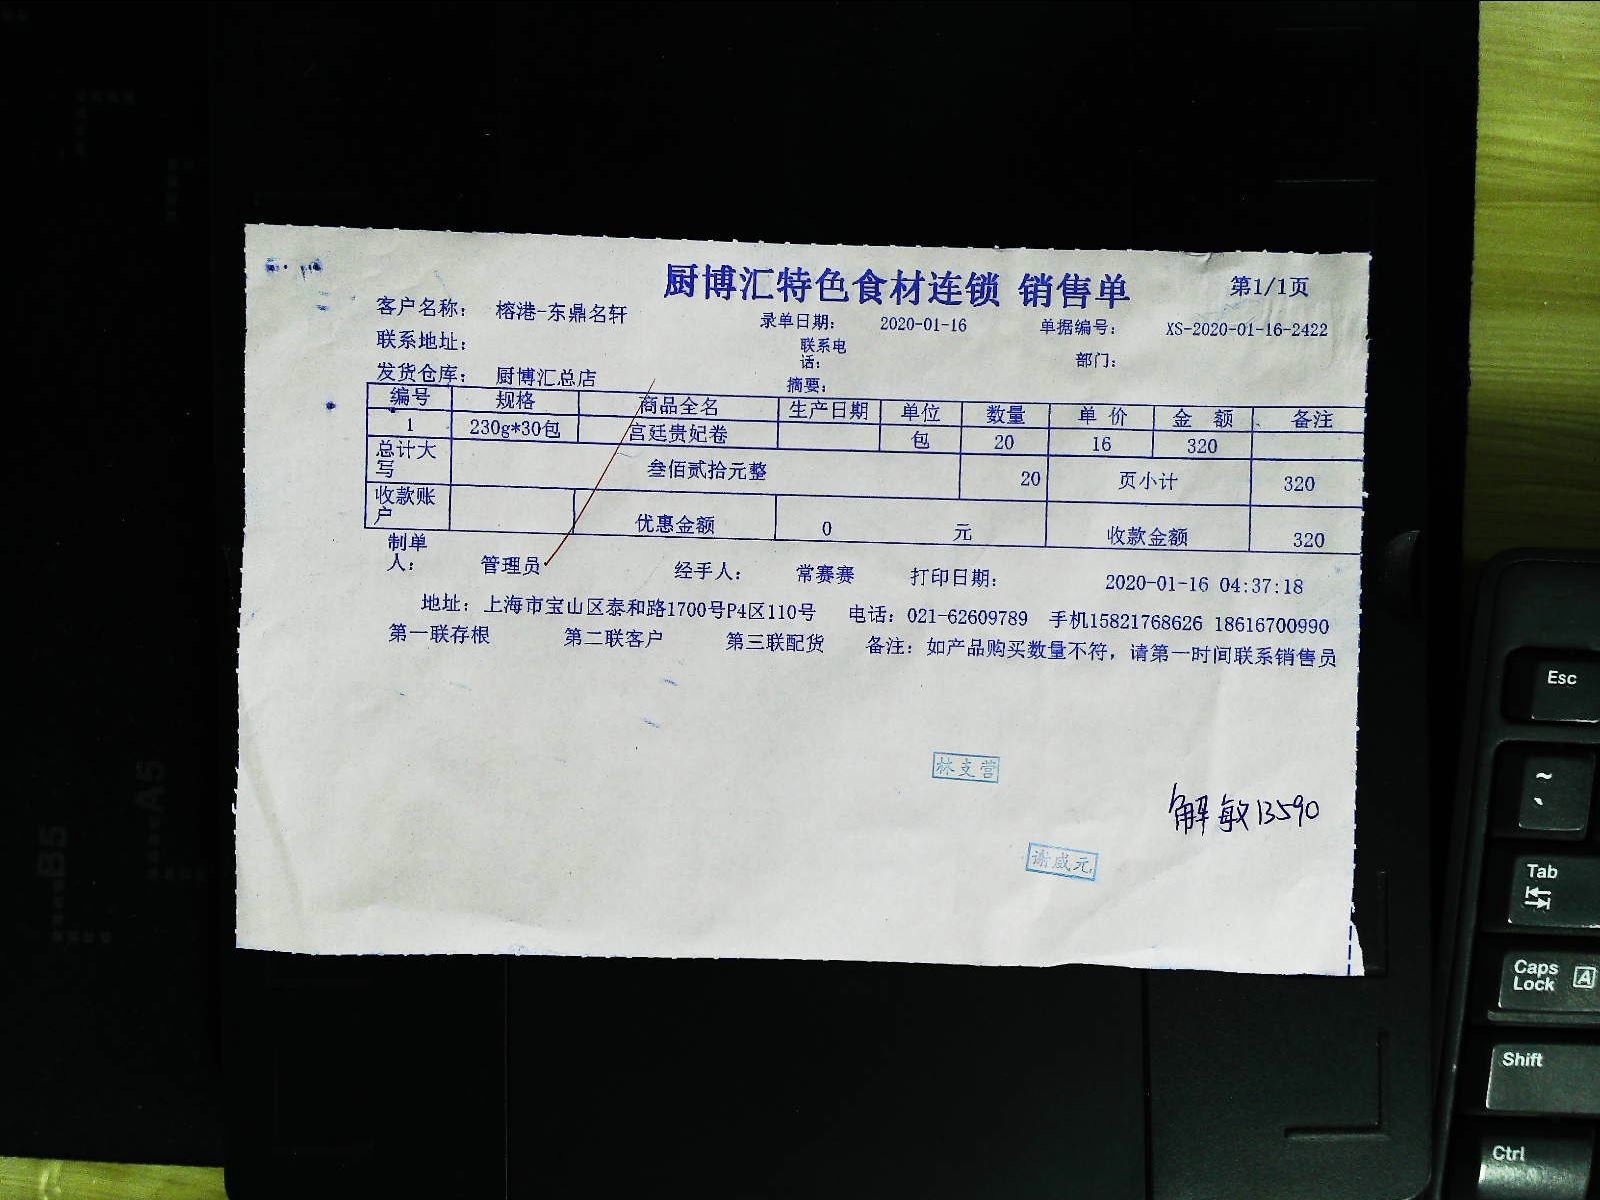 厨博汇特色食材连锁 销售单 第1/1页
客户名称： 榕港-东鼎名轩 录单日期： 2020-01-16 单据编号： XS-2020-01-16-2422
联系地址： 联系电话： 部门：
发货仓库： 厨博汇总店 摘要：
编号 规格 商品全名 生产日期 单位 数量 单 价 金 额 备注
1 230g*30包 宫廷贵妃卷 包 20 16 320
总计大写 叁佰贰拾元整 20 页小计 320
收款账户 优惠金额 0 元 收款金额 320
制单人： 管理员 经手人： 常赛赛 打印日期： 2020-01-16 04:37:18
地址：上海市宝山区泰和路1700号P4区110号 电话：021-62609789 手机15821768626 18616700990
第一联存根 第二联客户 第三联配货 备注：如产品购买数量不符，请第一时间联系销售员
林支营
解敏13590
谢威元
B5
A5
Esc
~
Tab
Caps Lock A
Shift
Ctrl